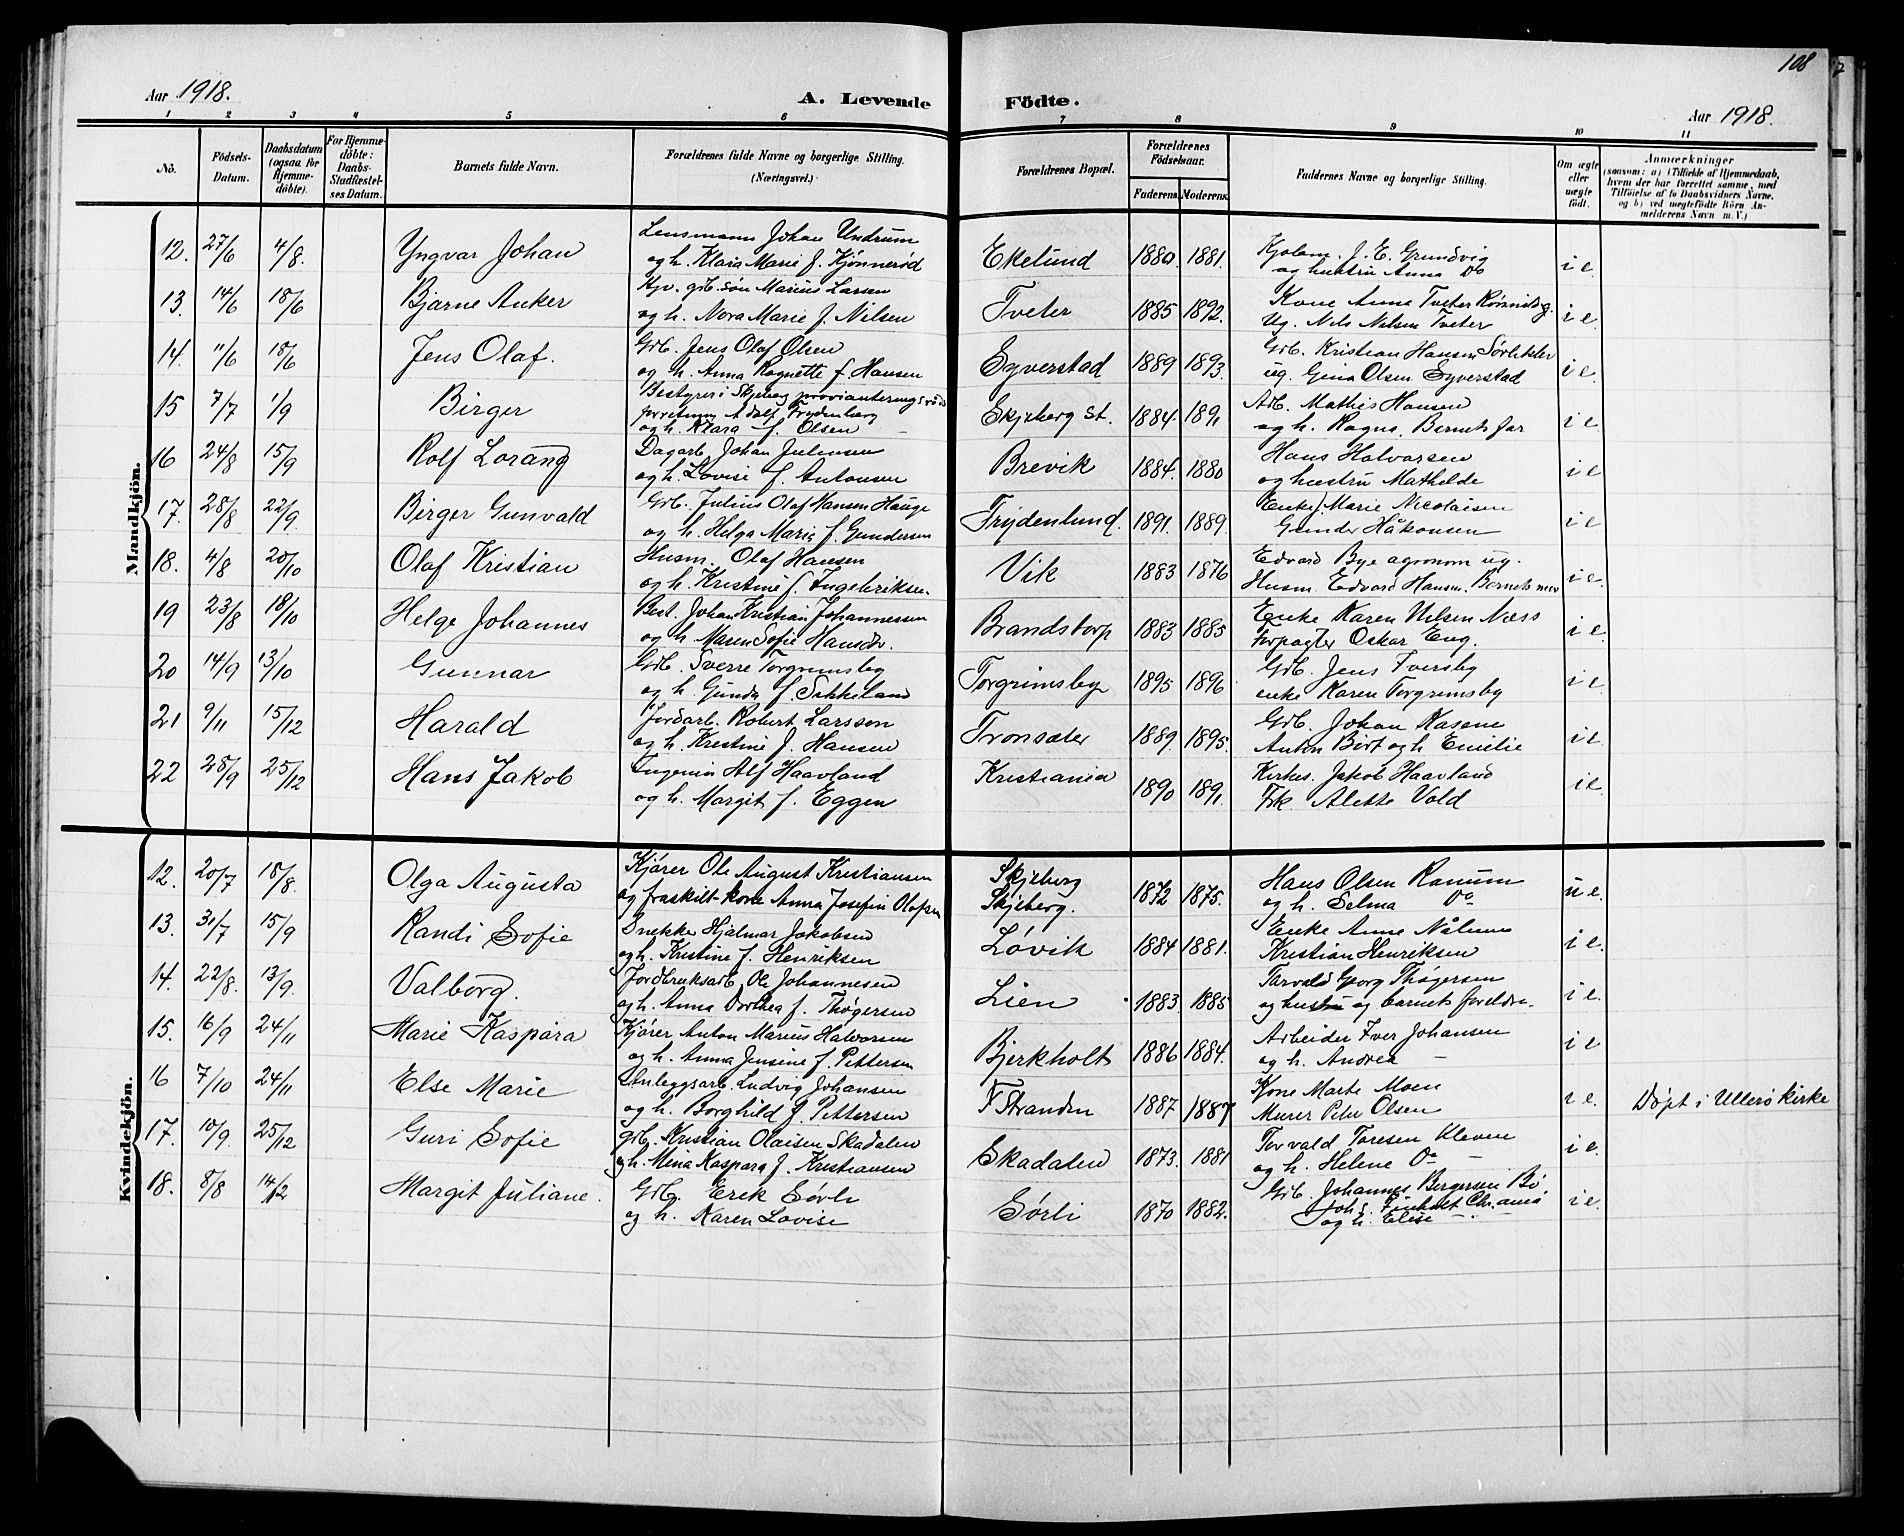 108
Aar 1918. A. Levende Födte. Aar 1918.
1 2 3 4 5 6 7 8 9 10 11
No. Födsels-Datum. Daabsdatum (ogsaa for Hjemmedöbte). For Hjemmedöbte: Daabs-Stadfæstelses Datum. Barnets fulde Navn. Forældrenes fulde Navne og borgerlige Stilling. (Næringsvei.) Forældrenes Bopæl. Forældrenes Födselsaar. Faderens. Moderens. Faddernes Navne og borgerlige Stilling. Om ægte eller uægte födt. Anmærkninger (saasom: a) i Tilfælde af Hjemmedaab, hvem der har forrettet samme, med Tilföielse af to Daabsvidners Navne, og b) ved uægtefödte Börn Anmelderens Navn m. V.)
Mandkjön.
12. 27/6 4/8. Yngvar Johan Lensmann Johan Undrum Ekelund 1880. 1881. J. E. Grundvig i e.
og h. Klara Marie f. Kjønnerød og hustru Anna Do
13. 14/6 18/6 Bjarne Anker grb. søn Marius Larsen Tveter 1885 1892. Kone Anna Tveter i e.
og h. Nora Marie f. Nilsen Ug. Nils Nilsen Tveter
14. 11/6 18/6 Jens Olaf. Grb. Jens Olaf Olsen Eyverstad 1889 1893. Grb. Kristian Hansen i e.
og h. Anna Ragnette f. Hansen ug. Gina Olsen Eyverstad
15 7/7 1/9 Birger Bestyrer i Skjeberg provianteringsråds Skjeberg St. 1884. 1891 Arb. Mathis Hansen i e.
forretning Adolf Frydenberg og h. Ragna. Bernets far
og h. Klara f. Olsen
16 24/8 15/9 Rolf Lorang Dagarb. Johan Julensen Brevik 1884. 1880 Hans Halvorsen i e
og h. Lovise f. Antonsen og hustru Mathilde
17. 28/8 22/9. Birger Gunvald Grb. Julius Olaf Hansen Hauge Frydenlund. 1891. 1889. Enkef. Marie Nicolaisen i e
og h. Helga Marie f. Gundersen Gunder Håkonsen
18. 4/8 20/10 Olaf Kristian Husm. Olaf Hansen Vik 1883 1876 Edvard Bye agronom ug. i e.
og h. Kristine f. Ingebriksen. Husm. Edvard Hansen. Bernets mor
19 23/8 18/10 Helge Johannes Best. Johan Kristian Johannessen Brandstorp 1883 1885 Enke Karen Nilsen Næss i e.
og h. Maren Sofie Hansdr. Forpagter Oskar Eng.
20 14/9 13/10 Gunnar Grb. Sverre Torgrimsby Torgrimsby 1895 1896 Grb. Jens Iversby i e
og h. Gunda f. Sikkeland enke Karen Torgrimsby
21 9/11 15/12 Harald Jordarb. Robert Larsson Tronsæter 1889 1895. Grb. Johan Kasene i e
og h. Kristine f. Hansen Anton Børt og h Emilie
22 28/9 25/12 Hans Jakob Ingeniør Alf Haavland Kristiania 1890 1891. Kirkes. Jakob Haavland i e.
og h. Margit f. Eggen Frk Alette Vold
Kvindekjön.
12. 20/7 18/8. Olga Augusta Kjører Ole August Kristiansen Skjeberg 1872 1875. Hans Olsen Ranum u e.
og fraskilt kone Anna Josefin Olafsen Skjeberg. og h. Selma Do
13. 31/7 15/9 Randi Sofie Snekker Hjalmar Jakobsen Løvik 1884 1881. Enke Anne i e.
og h. Kristine f. Henriksen Kristian Henriksen
14. 22/8. 13/9. Valborg. Jordbruksarb. Ole Johannesen Lien 1883. 1885 Tarvald Georg Thøgersen i e.
og h. Anna Dorthea f. Thøgersen og hustru og barnets foreldre.
15. 16/9 24/11 Marie Kaspara Kjører Anton Marius Halvorsen Bjerkholt 1886 1884. Arbeider Iver Johansen i e
og h. Anna Jensine f. Pettersen og h. Andrea —
16 7/10 24/11 Else Marie Anleggsarb. Ludvig Johansen Stranden 1887 1887 Kone Marte Moen i e. Døpt i Ullerø kirke
og h. Borghild f. Pettersen Murer Petr Olsen
17. 10/9. 25/12 Guri Sofie grb. Kristian Olaisen Skadalen Skadalen 1873. 1881 Torvald Toresen Kleven i e.
og h. Mina Kaspara f. Kristiansen og h. Helene Do —
18. 8/8 14/12 Margit Juliane. Grb. Erik Sørli Sørli 1870 1882. Grb. Johannes Bergersen Bø i e.
og h. Karen Lovise Johs. Finholt Chr.ania
og h. Elise —